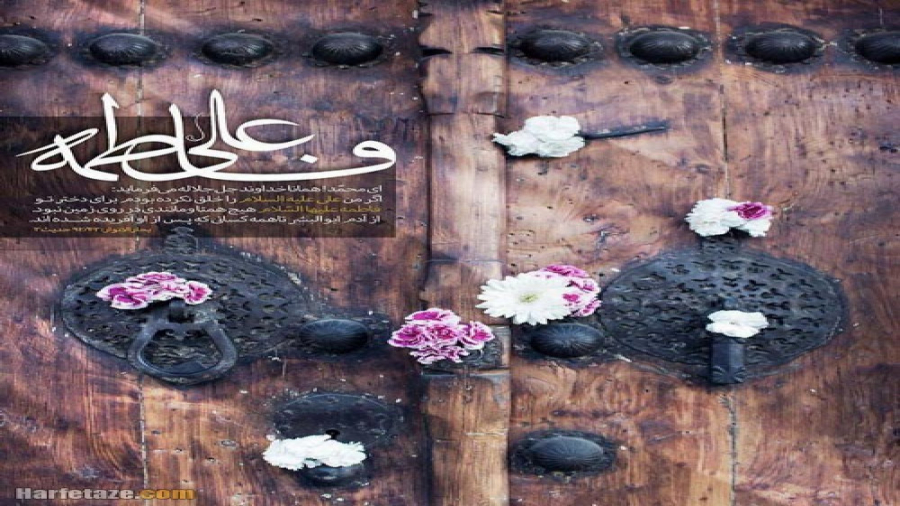 علی و فاطمه
ای محمّد! همانا خداوند جل جلاله می‌فرماید:
اگر من علی علیه السلام را خلق نکرده بودم برای دختر تو
فاطمه علیها السّلام هیچ همتا و مانندی در روی زمین نبود
از آدم ابوالبشر تا همه کسانی که پس از او آفریده شده اند
بحارالانوار: ۹۲/۴۳ حدیث۳
Harfetaze.com